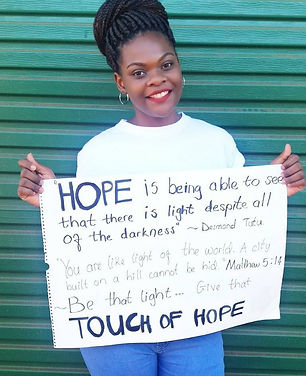 "HOPE is being able to see
that there is light despite all
of the darkness" ~ Desmond Tutu.
"You are like light of the world. A city
built on a hill cannot be hid." Matthew 5:14
~ Be that light... Give that
TOUCH OF HOPE